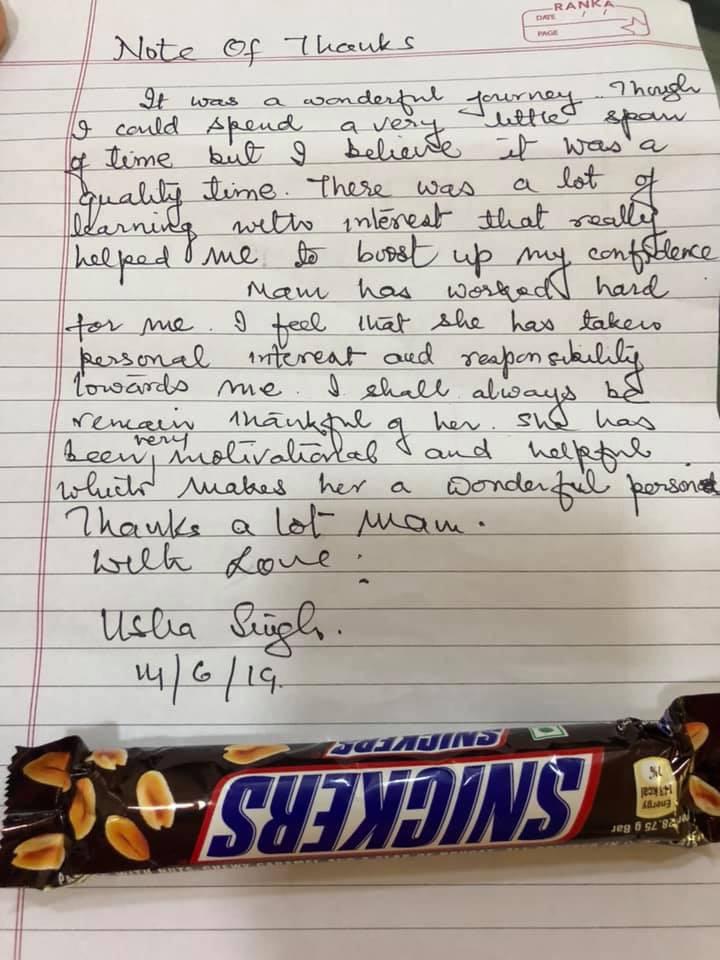 RANKA
DATE / /
PAGE
Note Of Thanks
It was a wonderful journey. Though
I could spend a very little span
of time but I believe it was a
quality time. There was a lot of
learning with interest that really
helped me to boost up my confidence
Mam has worked hard
for me. I feel that she has taken
personal interest and responsibility
towards me. I shall always be
remain thankful of her. She has
been very motivational and helpful
which makes her a wonderful person
Thanks a lot Mam.
With Love:
Usha Singh.
14/6/19.
SNICKERS
SNICKERS
Energy
143 kcal
7%
Per 28.75 g Bar